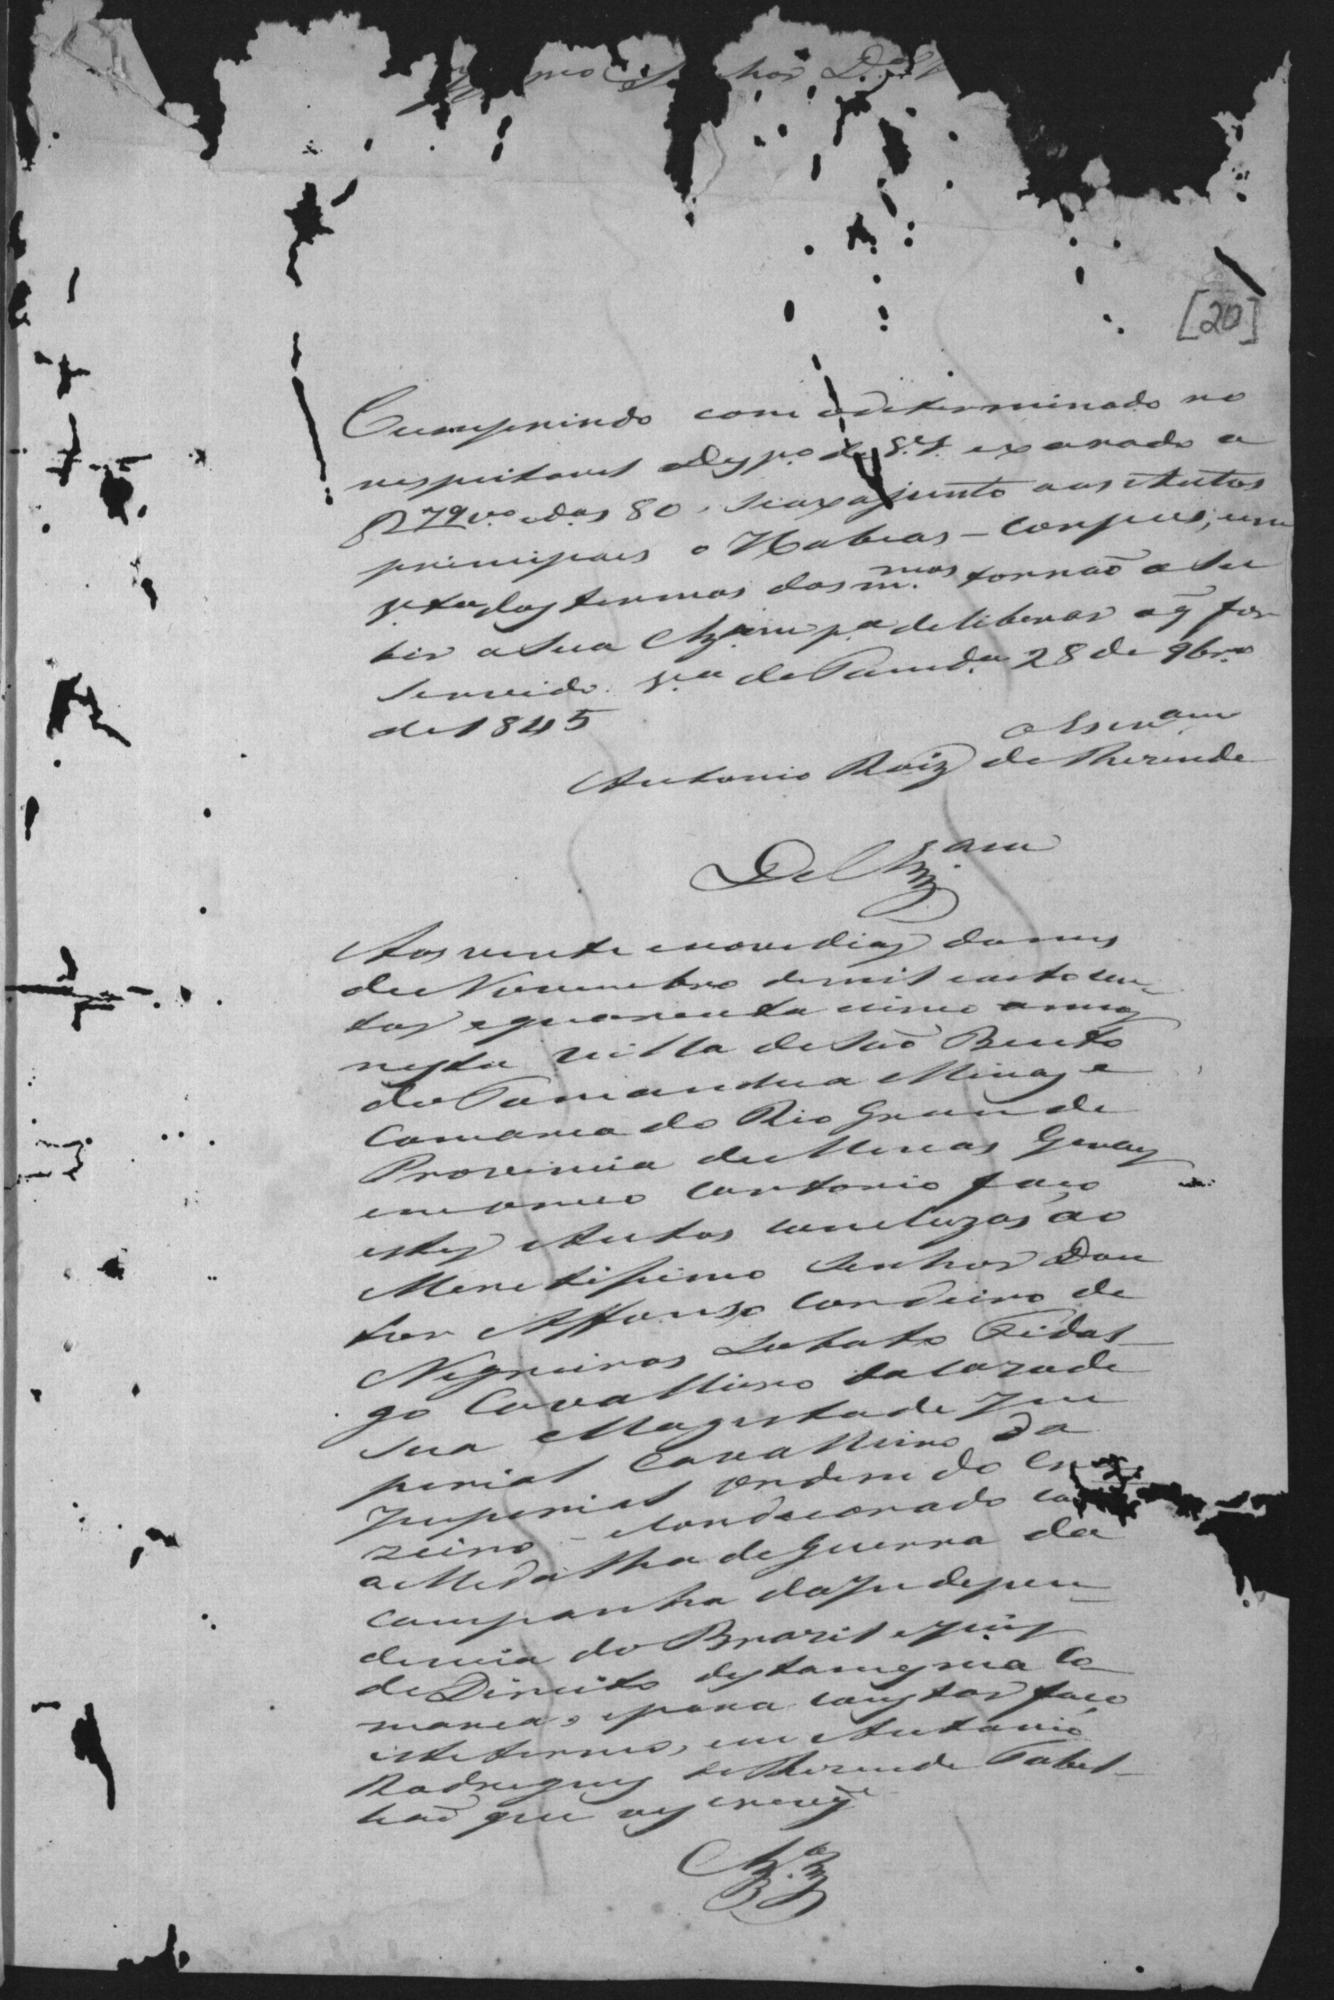 Senhor D.
[20]
Cumprindo com o determinado no
respeitavel Desp.o de S. S. exarado a
fl 79 v.o e das 80, seaxa junto aos Autos
principaes o Habeas-Corpus, em
v.ta dos termos dos m.mos tornão a Su
bir a Sua p.a deliberar o q̃ for
Servido. V.a de Tamd.a 28 de 9br.o
de 1845
o Escr.am
Antonio Roiz de Rezende
Aos vinte enove dias do mes
de Novembro de mil eoitocen-
tos equarenta cinco annos
nesta Villa de São Bento
do Tamandua Minas e
Comarca do Rio Grande
Provincia de Minas Geraes
em o meo Cartorio faço
estes Autos concluzos ao
Meretissimo Senhor Dou
tor Affonso Cordeiro de
Negreiros Lobato Fidal-
go Cavalleiro da Caza de
Sua Magestade Im
perial Cavalleiro da
Imperial Ordem do Cru
zeiro - Condecorado co
a Medalha de Guerra da
Campanha da Indepen-
dencia do Brazil eJuis
de Direito desta mesma Co-
marca, epara constar faço
este termo, eu Antonio
Rodrigues de Rezende Tabel-
lião que escrevy